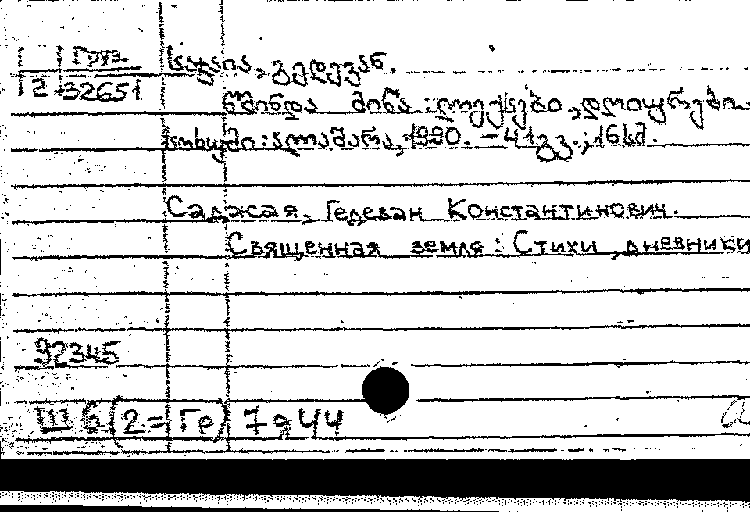 Груз
2 32651
საჯაია, გედევან.
წმინდა მიწა : ლექსები, დღიურები.
სოხუმი : ალაშარა, 1990. – 41 გვ.; 16 სმ.
Саджая, Гедеван Константинович.
Священная земля : Стихи, дневники
92345
Ш 6 (2=Ге) 7 я 44